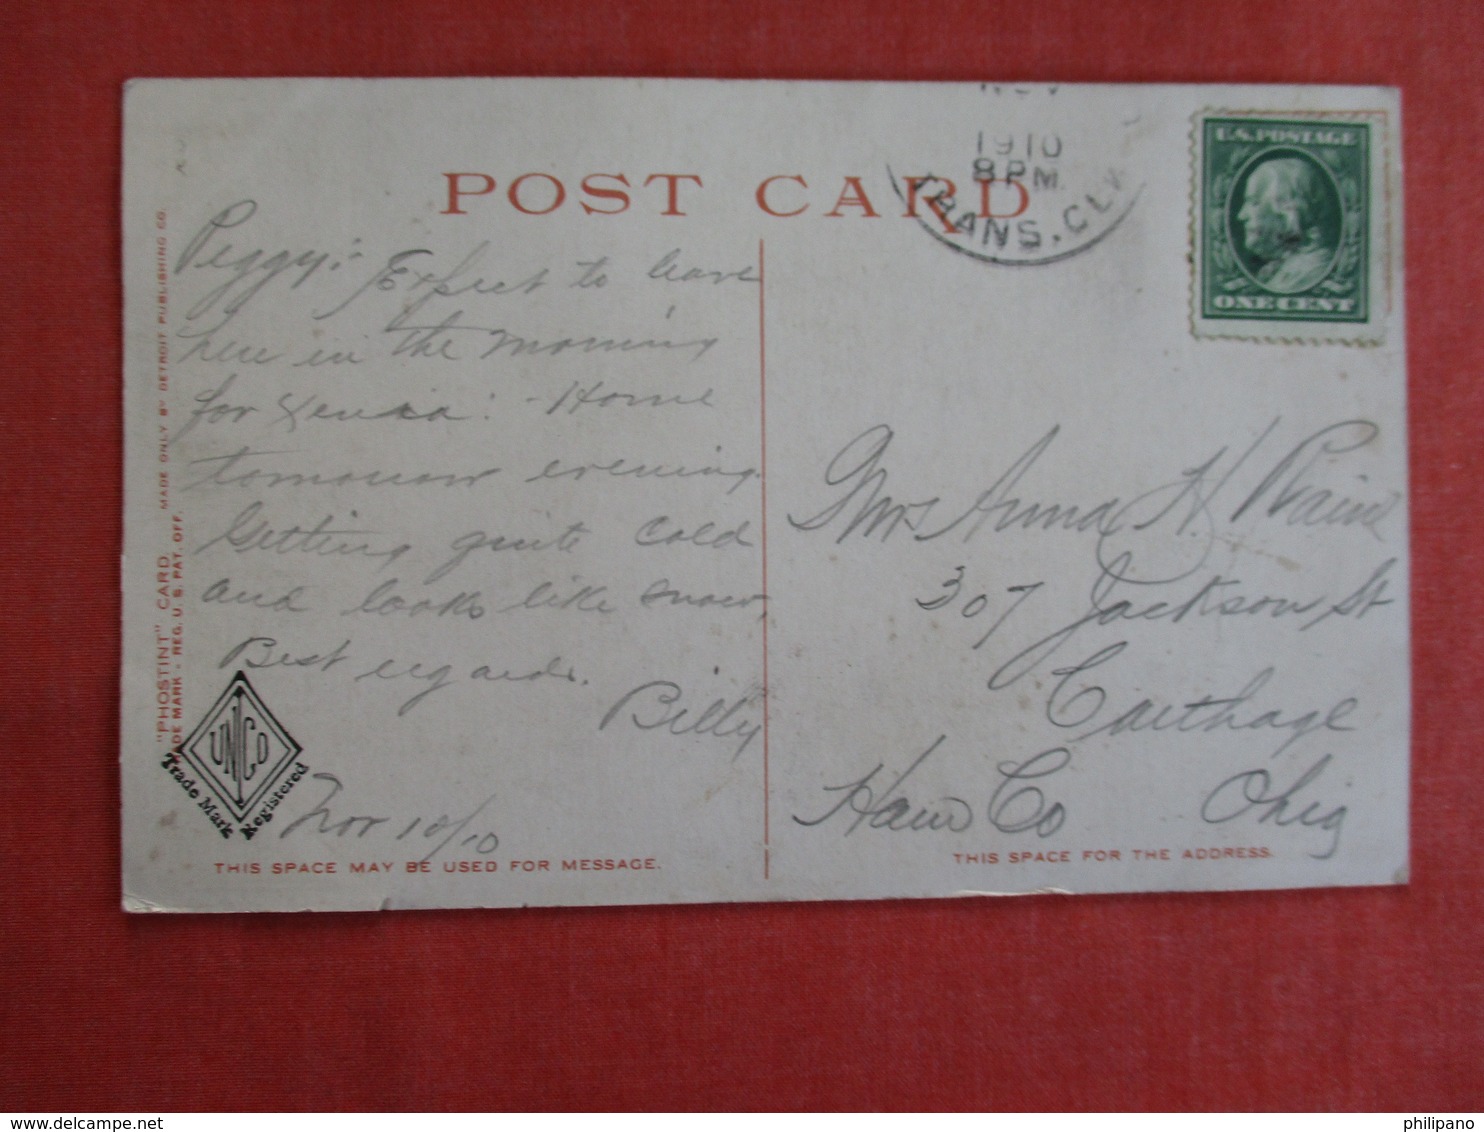 POST CARD
NOV
1910
8PM.
TRANS. CLK
U.S. POSTAGE
ONE CENT
Peggy:- Expect to leave
here in the morning
for Xenia:- Home
tomorrow evening.
Getting quite cold
and looks like snow.
Best regards.
Billy
Nov 10/10
Mrs Anna H.
307 Jackson St
Carthage
Ham Co Ohio
"PHOSTINT" CARD MADE ONLY BY DETROIT PUBLISHING CO.
ADE MARK - REG. U. S. PAT. OFF.
UNICO
Trade Mark Registered
THIS SPACE MAY BE USED FOR MESSAGE.
THIS SPACE FOR THE ADDRESS.
philipano